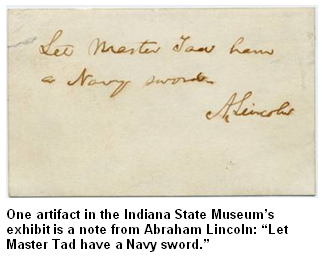 Let Master Tad have
a Navy sword
A. Lincoln
One artifact in the Indiana State Museum's
exhibit is a note from Abraham Lincoln: “Let
Master Tad have a Navy sword.”